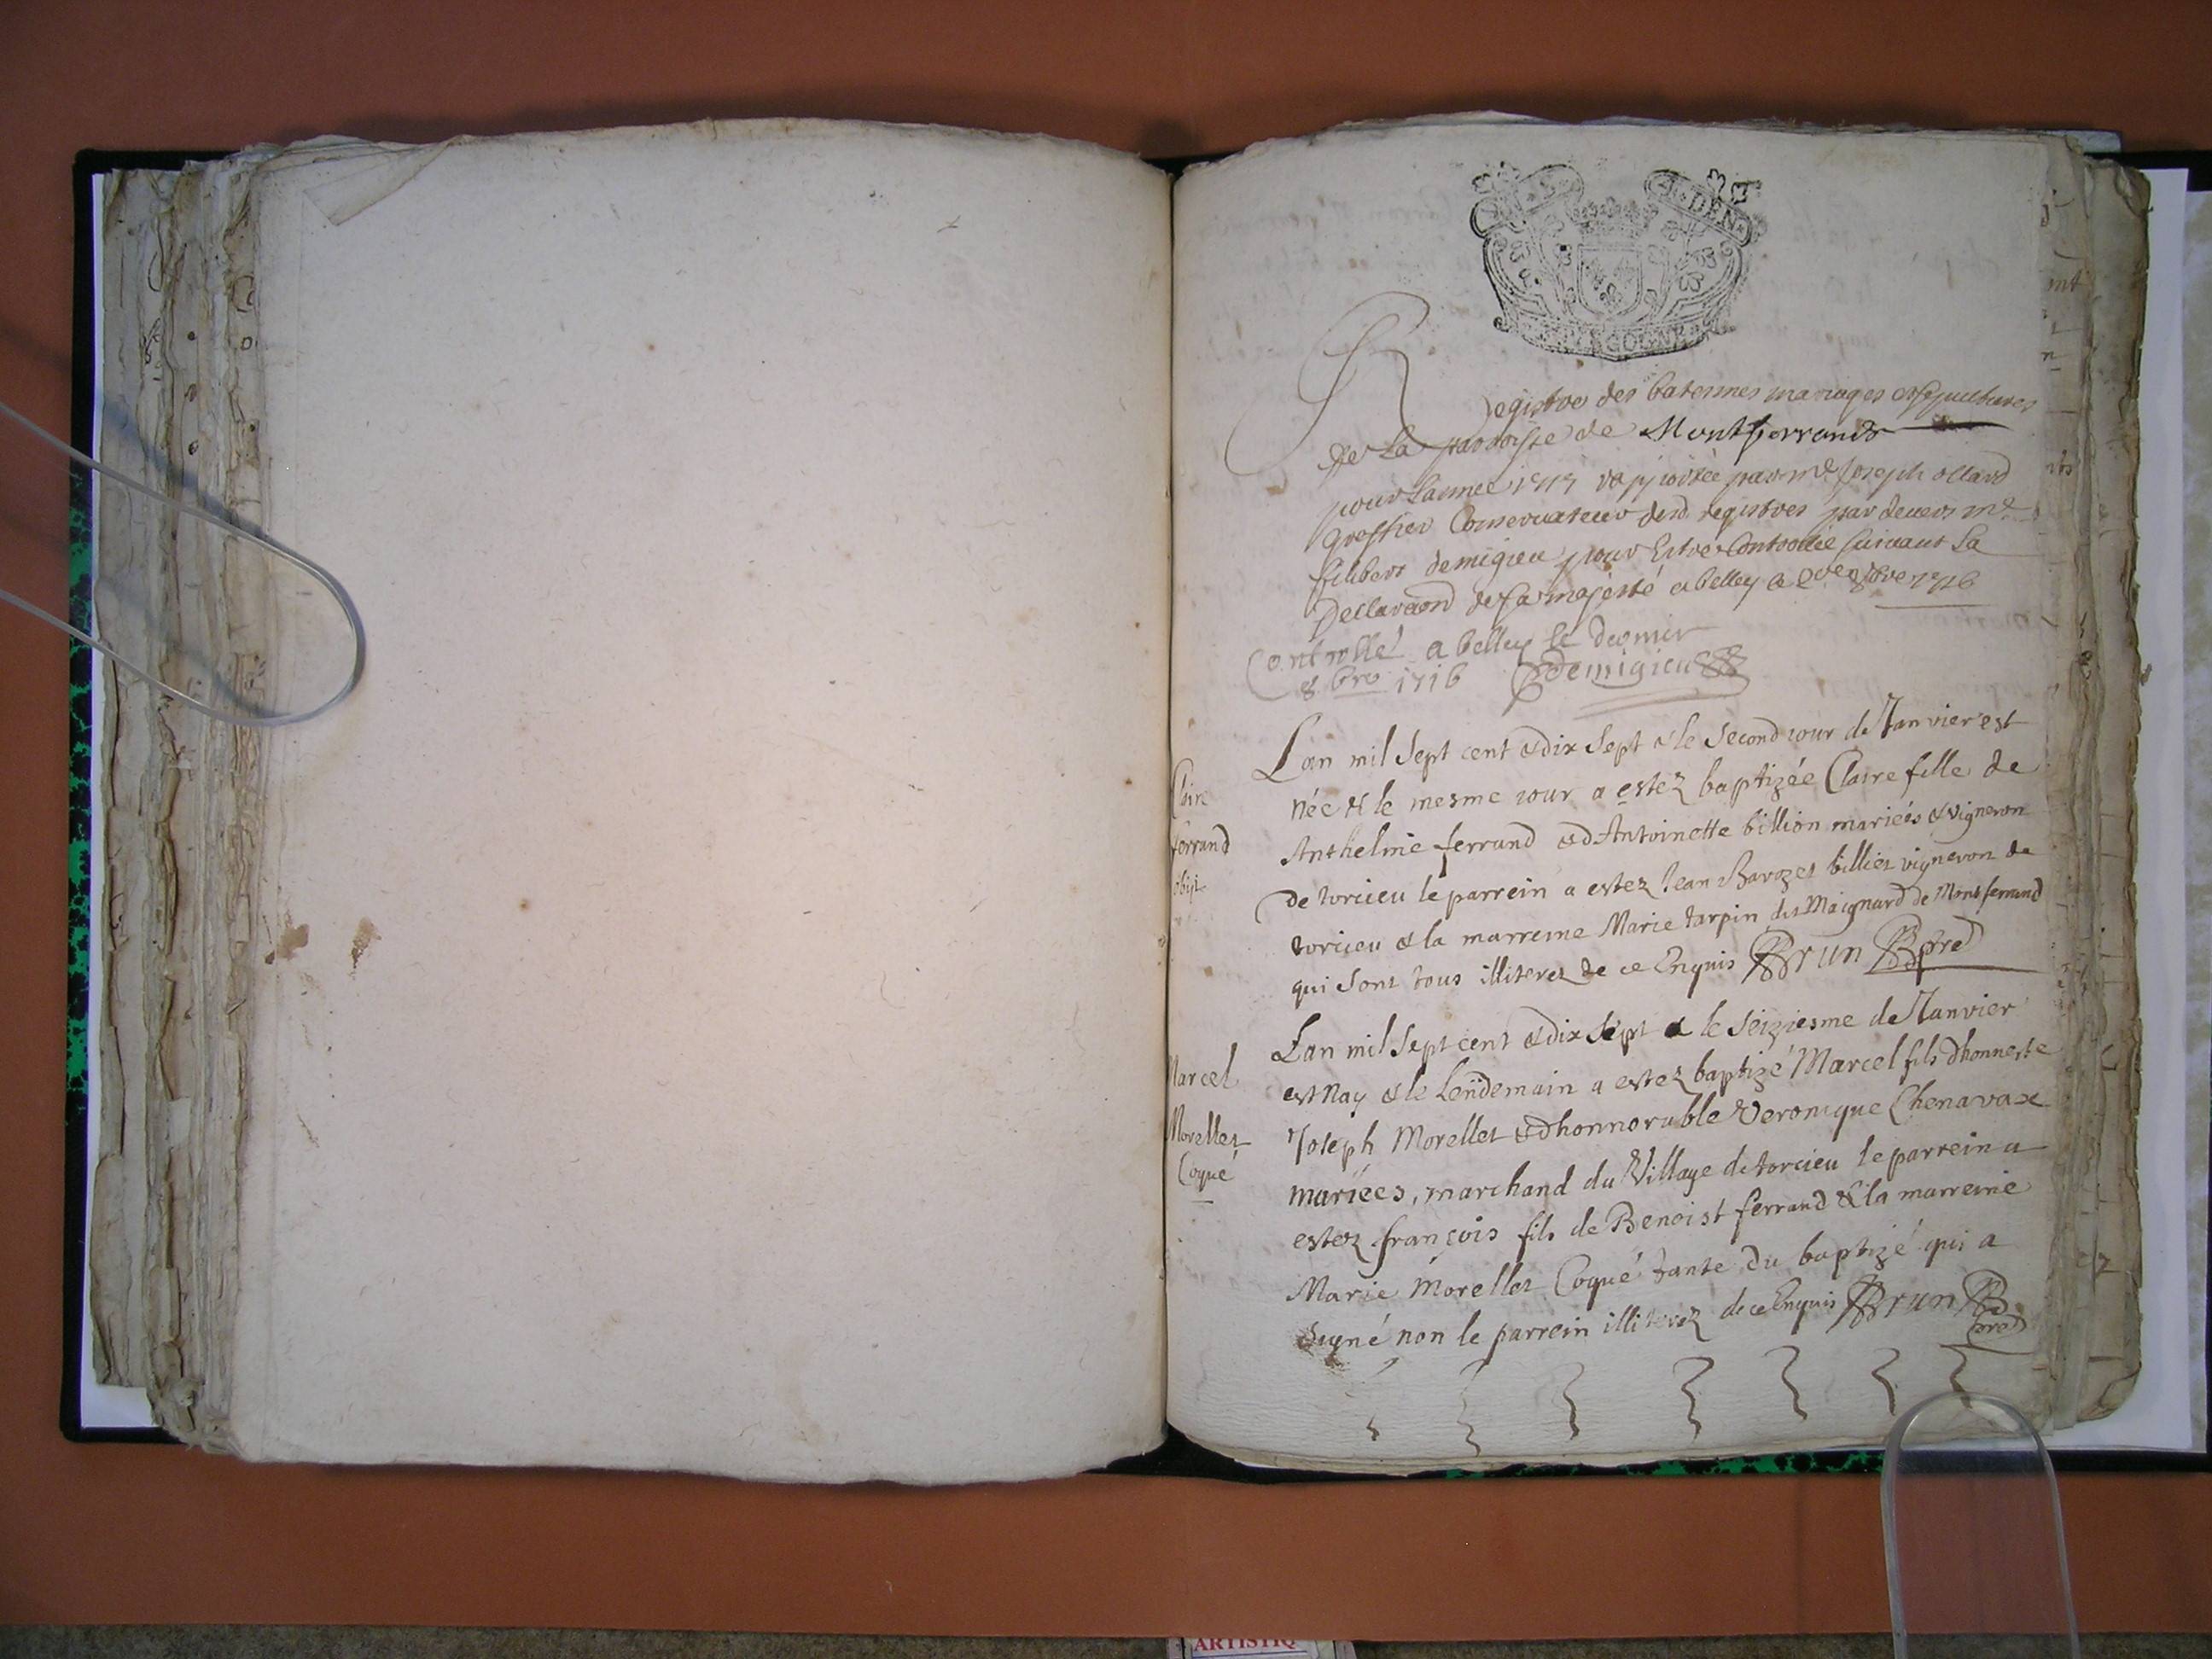 DEN
GOGNE
Registre des batesmes mariages et sepultures
de La parroisse de Montferrand
pour Lannée 1717 rapportée par me Joseph ollard
greffier Conservateur desd. registres par devers me
filibert demigieu pour Estre Controllée suivant La
Declaraond de sa majesté a belley ce 8bre 1716
Controllé a belley le dernier
8bre 1716 Demigieu
Lan mil Sept cent & dix Sept & le Second iour de Janvier est
née & le mesme iour a estez baptizée Claire fille de
Claire
ferrand
obijt
Anthelme ferrand & d Antoinette billion mariées & vigneron
de torcieu le parrein a estez Jean Bavozet billiet vigneron de
torcieu & la marreine Marie tarpin dit Maignard de Montferrand
qui sont tous illiterez de ce Enquis Brun pred
Lan mil Sept cent & dix Sept & le Seiziesme de Janvier
est Nay & le Lendemain a estez baptizé Marcel fils dhonneste
Marcel
Morellet
Coqué
Joseph Morellet & dhonnorable Veronique Chenavax
mariées, marchand du Village de torcieu le parrein a
estez françois fils de Benoist ferrand & la marreine
Marie Morellet Coqué tante du baptizé qui a
Signé non le parrein illiterez de ce Enquis Brun
pred
ARTISTIQ